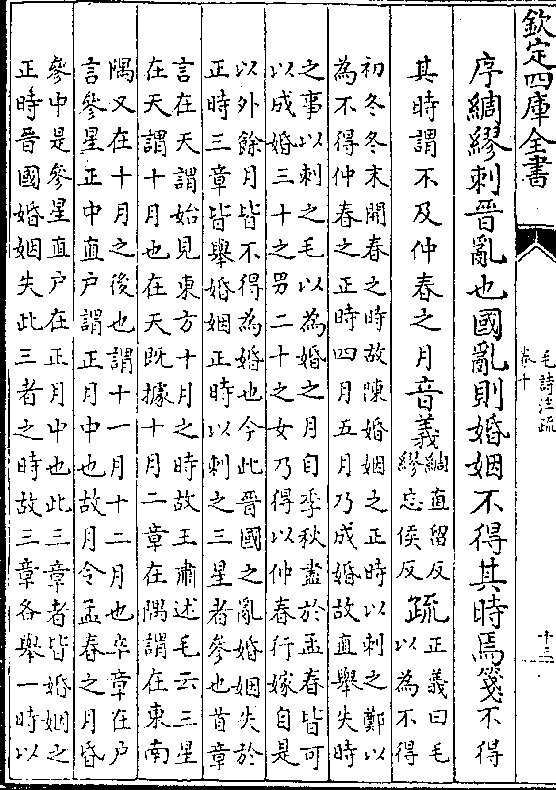 欽定四庫全書
毛詩注疏
卷十
十三
序綢繆刺晉亂也國亂則婚姻不得其時焉箋不得
其時謂不及仲春之月音義綢直留反繆忘侯反疏正義曰毛以為不得
初冬冬末開春之時故陳婚姻之正時以刺之鄭以
為不得仲春之正時四月五月乃成婚故直舉失時
之事以刺之毛以為婚之月自季秋盡於孟春皆可
以成婚三十之男二十之女乃得以仲春行嫁自是
以外餘月皆不得為婚也今此晉國之亂婚姻失於
正時三章皆舉婚姻正時以刺之三星者參也首章
言在天謂始見東方十月之時故王肅述毛云三星
在天謂十月也在天既據十月二章在隅謂在東南
隅又在十月之後也謂十一月十二月也卒章在戶
言參星正中直戶謂正月中也故月令孟春之月昏
參中是參星直戶在正月中也此三章者皆婚姻之
正時晉國婚姻失此三者之時故三章各舉一時以